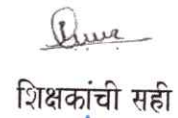 शिक्षकांची सही